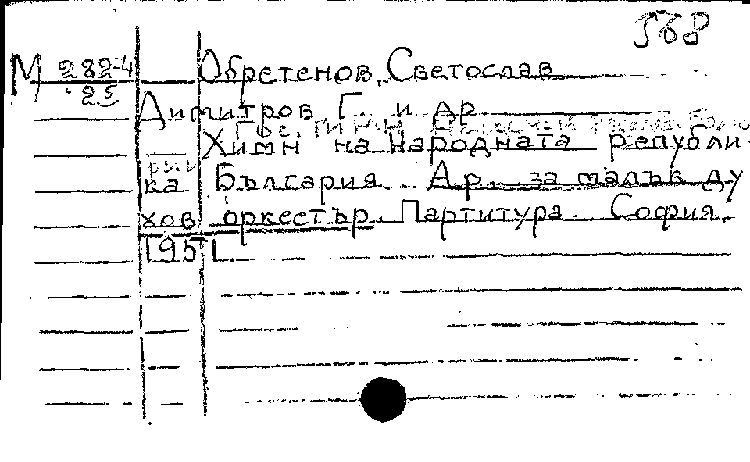 568
М 2824 Обретенов, Светослав
25
Димитров Г. и др
Химн на Народната републи-
ка България. Ар. за малък ду
хов оркестър. Партитура. София,
1951